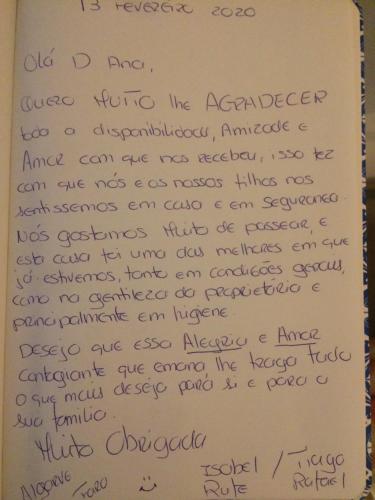 13 FEVEREIRO 2020
Olá D Ana,
QUERO MUITO lhe AGRADECER
toda a disponibilidade, Amizade e
Amor com que nos recebeu, isso fez
com que nós e os nossos filhos nos
sentissemos em casa e em segurança.
Nós gostamos Muito de passear, e
esta casa foi uma das melhores em que
já estivemos, tanto em condições gerais,
como na gentileza da proprietária e
principalmente em higiene.
DESEJO que essa Alegria e Amor
contagiante que emana, lhe traga tudo
O que mais deseja para si e para a
sua familia.
Muito Obrigada
Isabel / Tiago
Algarve Faro :) Rute Rafael